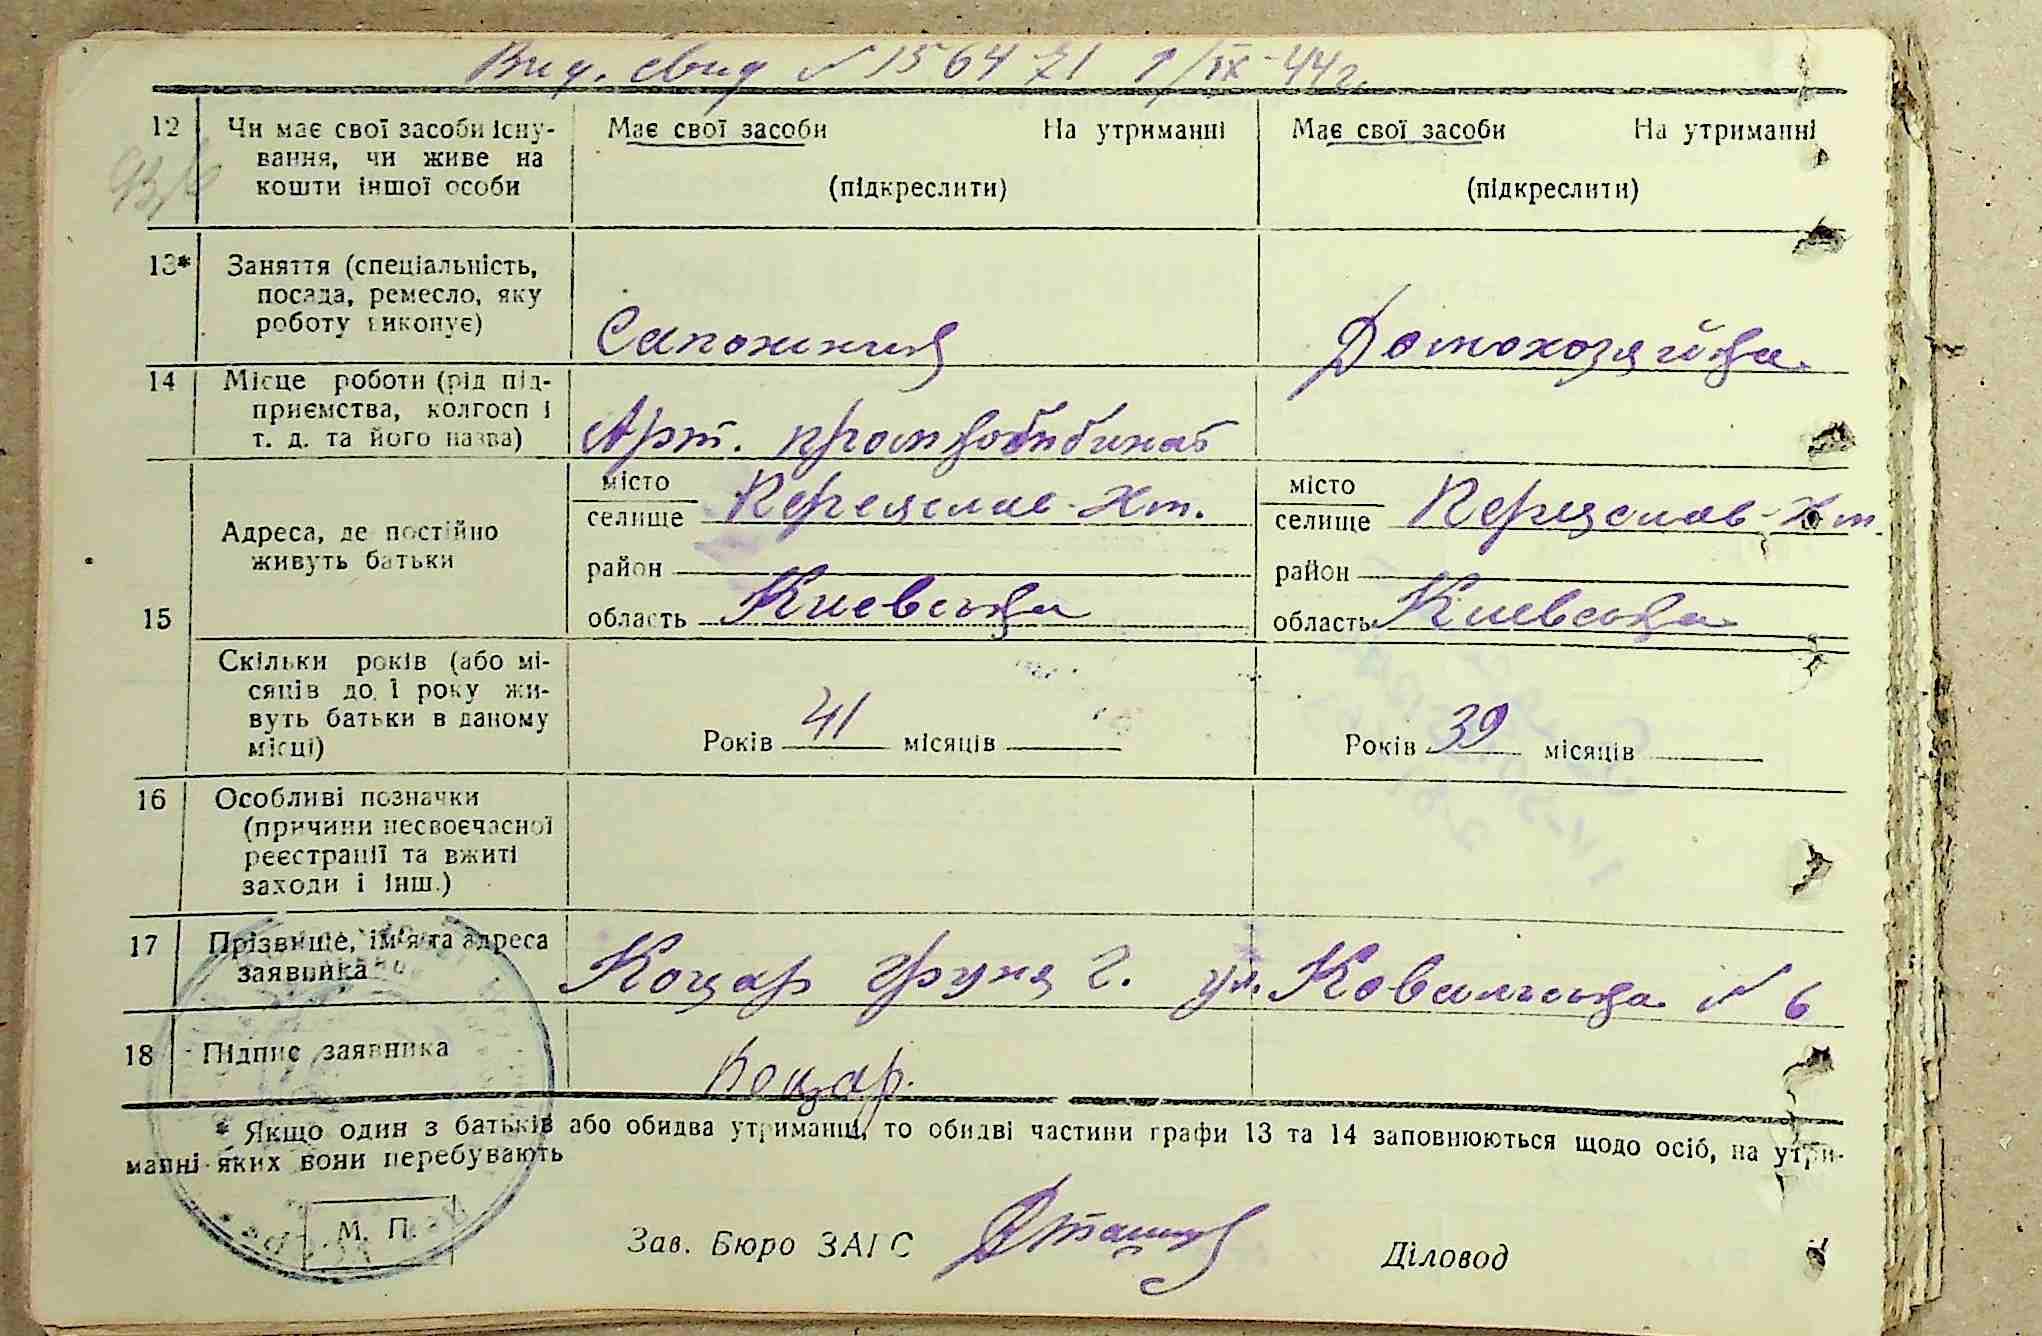 Вид. свид № 156471 9/IX-44г.
12 Чи має свої засоби існу-
вання, чи живе на
кошти іншої особи
Має свої засоби На утриманні
(підкреслити)
Має свої засоби На утриманні
(підкреслити)
13* Заняття (спеціальність,
посада, ремесло, яку
роботу виконує)
Сапожник
Домохозяйка
14 Місце роботи (рід під-
приємства, колгосп і
т. д. та його назва)
Арт. промкомбинат
15
Адреса, де постійно
живуть батьки
місто
селище Переяслав-Хм.
район
область Киевська
місто
селище Переяслав-Хм.
район
область Киевська
Скільки років (або мі-
сяців до 1 року жи-
вуть батьки в даному
місці)
Років 41 місяців
Років 39 місяців
16 Особливі позначки
(причини несвоєчасної
реєстрації та вжиті
заходи і інш.)
17 Прізвище, ім'я та адреса
заявника
Коцар Груня Г. ул. Ковальська № 6
18 Підпис заявника
Коцар.
* Якщо один з батьків або обидва утриманці, то обидві частини графи 13 та 14 заповнюються щодо осіб, на утри-
манні яких вони перебувають
М. П.
Зав. Бюро ЗАГС
Діловод